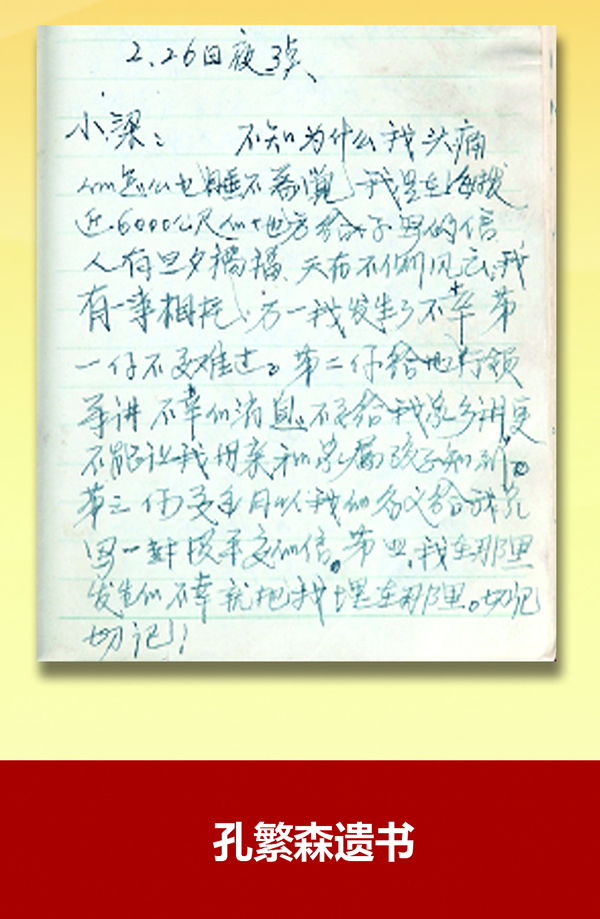 2.26日夜3点
小梁: 不知为什么我头痛
怎么也睡不着觉 我是在海拔
近6000公尺的地方给你写的信.
人有旦夕祸福、天有不测风云,我
有一事相托,万一我发生了不幸 第
一你不要难过。第二你给地行领
导讲 不幸的消息。不要给我家乡讲更
不能让我母亲和家属孩子知到。
第三 你要每月以我的名义给我家
写一封报平安的信。第四,我在那里
发生的不幸就把我埋在那里。切记
切记!
孔繁森遗书